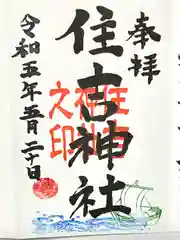 奉拝
住吉神社
住吉
神社
之印
令和五年五月二十日